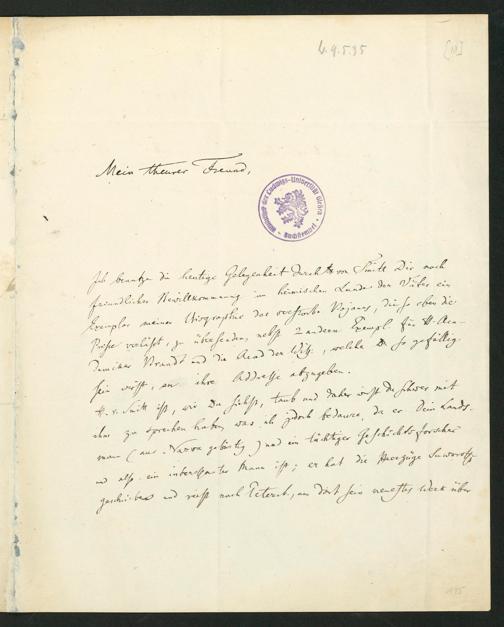 b. 9.5.95
[18]
Mein theurer Freund,
Bibliothek der Ludwigs-Universität Gießen
Ich benutze die heutige Gelegenheit durch H. von Smitt Dir nach
freundlicher Bewillkommnung im heimischen Lande der Väter ein
Exemplar meiner Biographie des verstorb. Bojanus, die so eben die
Presse verläßt, zu übersenden, nebst 2 andern Exempl. für H. Aca-
demiker Brandt und die Acad. der Wiss., welche Du so gefällig
sein wirst, an ihre Addresse abzugeben.
H. v. Smitt ist, wie Du siehst, taub und daher wirst du schwer mit
ihm zu sprechen haben, was ich jedoch bedaure, da er Dein Lands-
mann (aus Narva gebürtig) und ein tüchtiger Geschichtsforscher
und also ein interessanter Mann ist; er hat die Heerzüge Suworoffs
geschrieben und reist nach Petersb., um dort sein neuestes Werk über